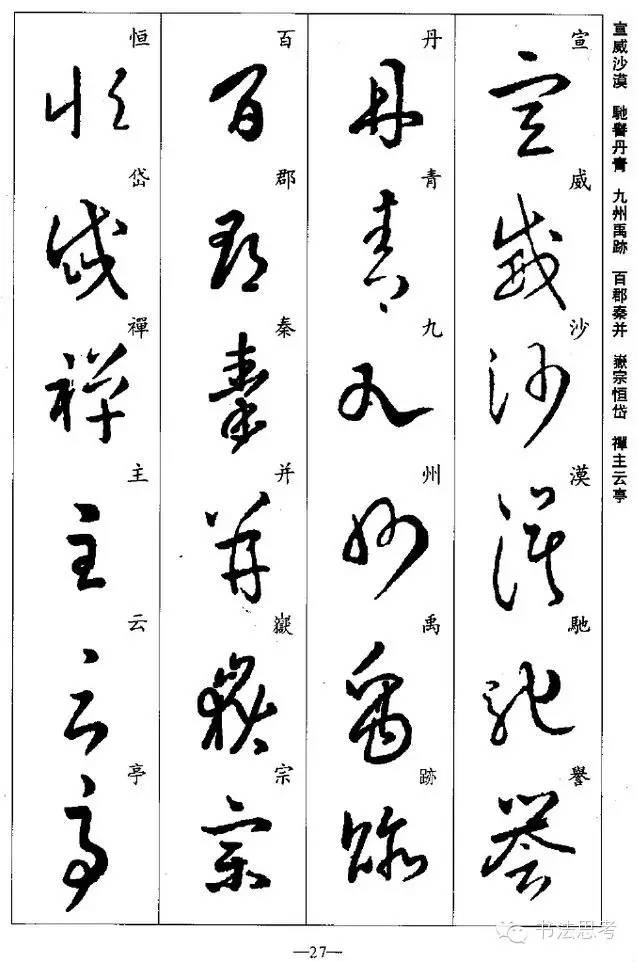 宣威沙漠 馳譽丹青 九州禹跡 百郡秦并 嶽宗恒岱 禪主云亭
宣威沙漠馳譽
丹青九州禹跡
百郡秦并嶽宗
恒岱禪主云亭
—27—
书法思考